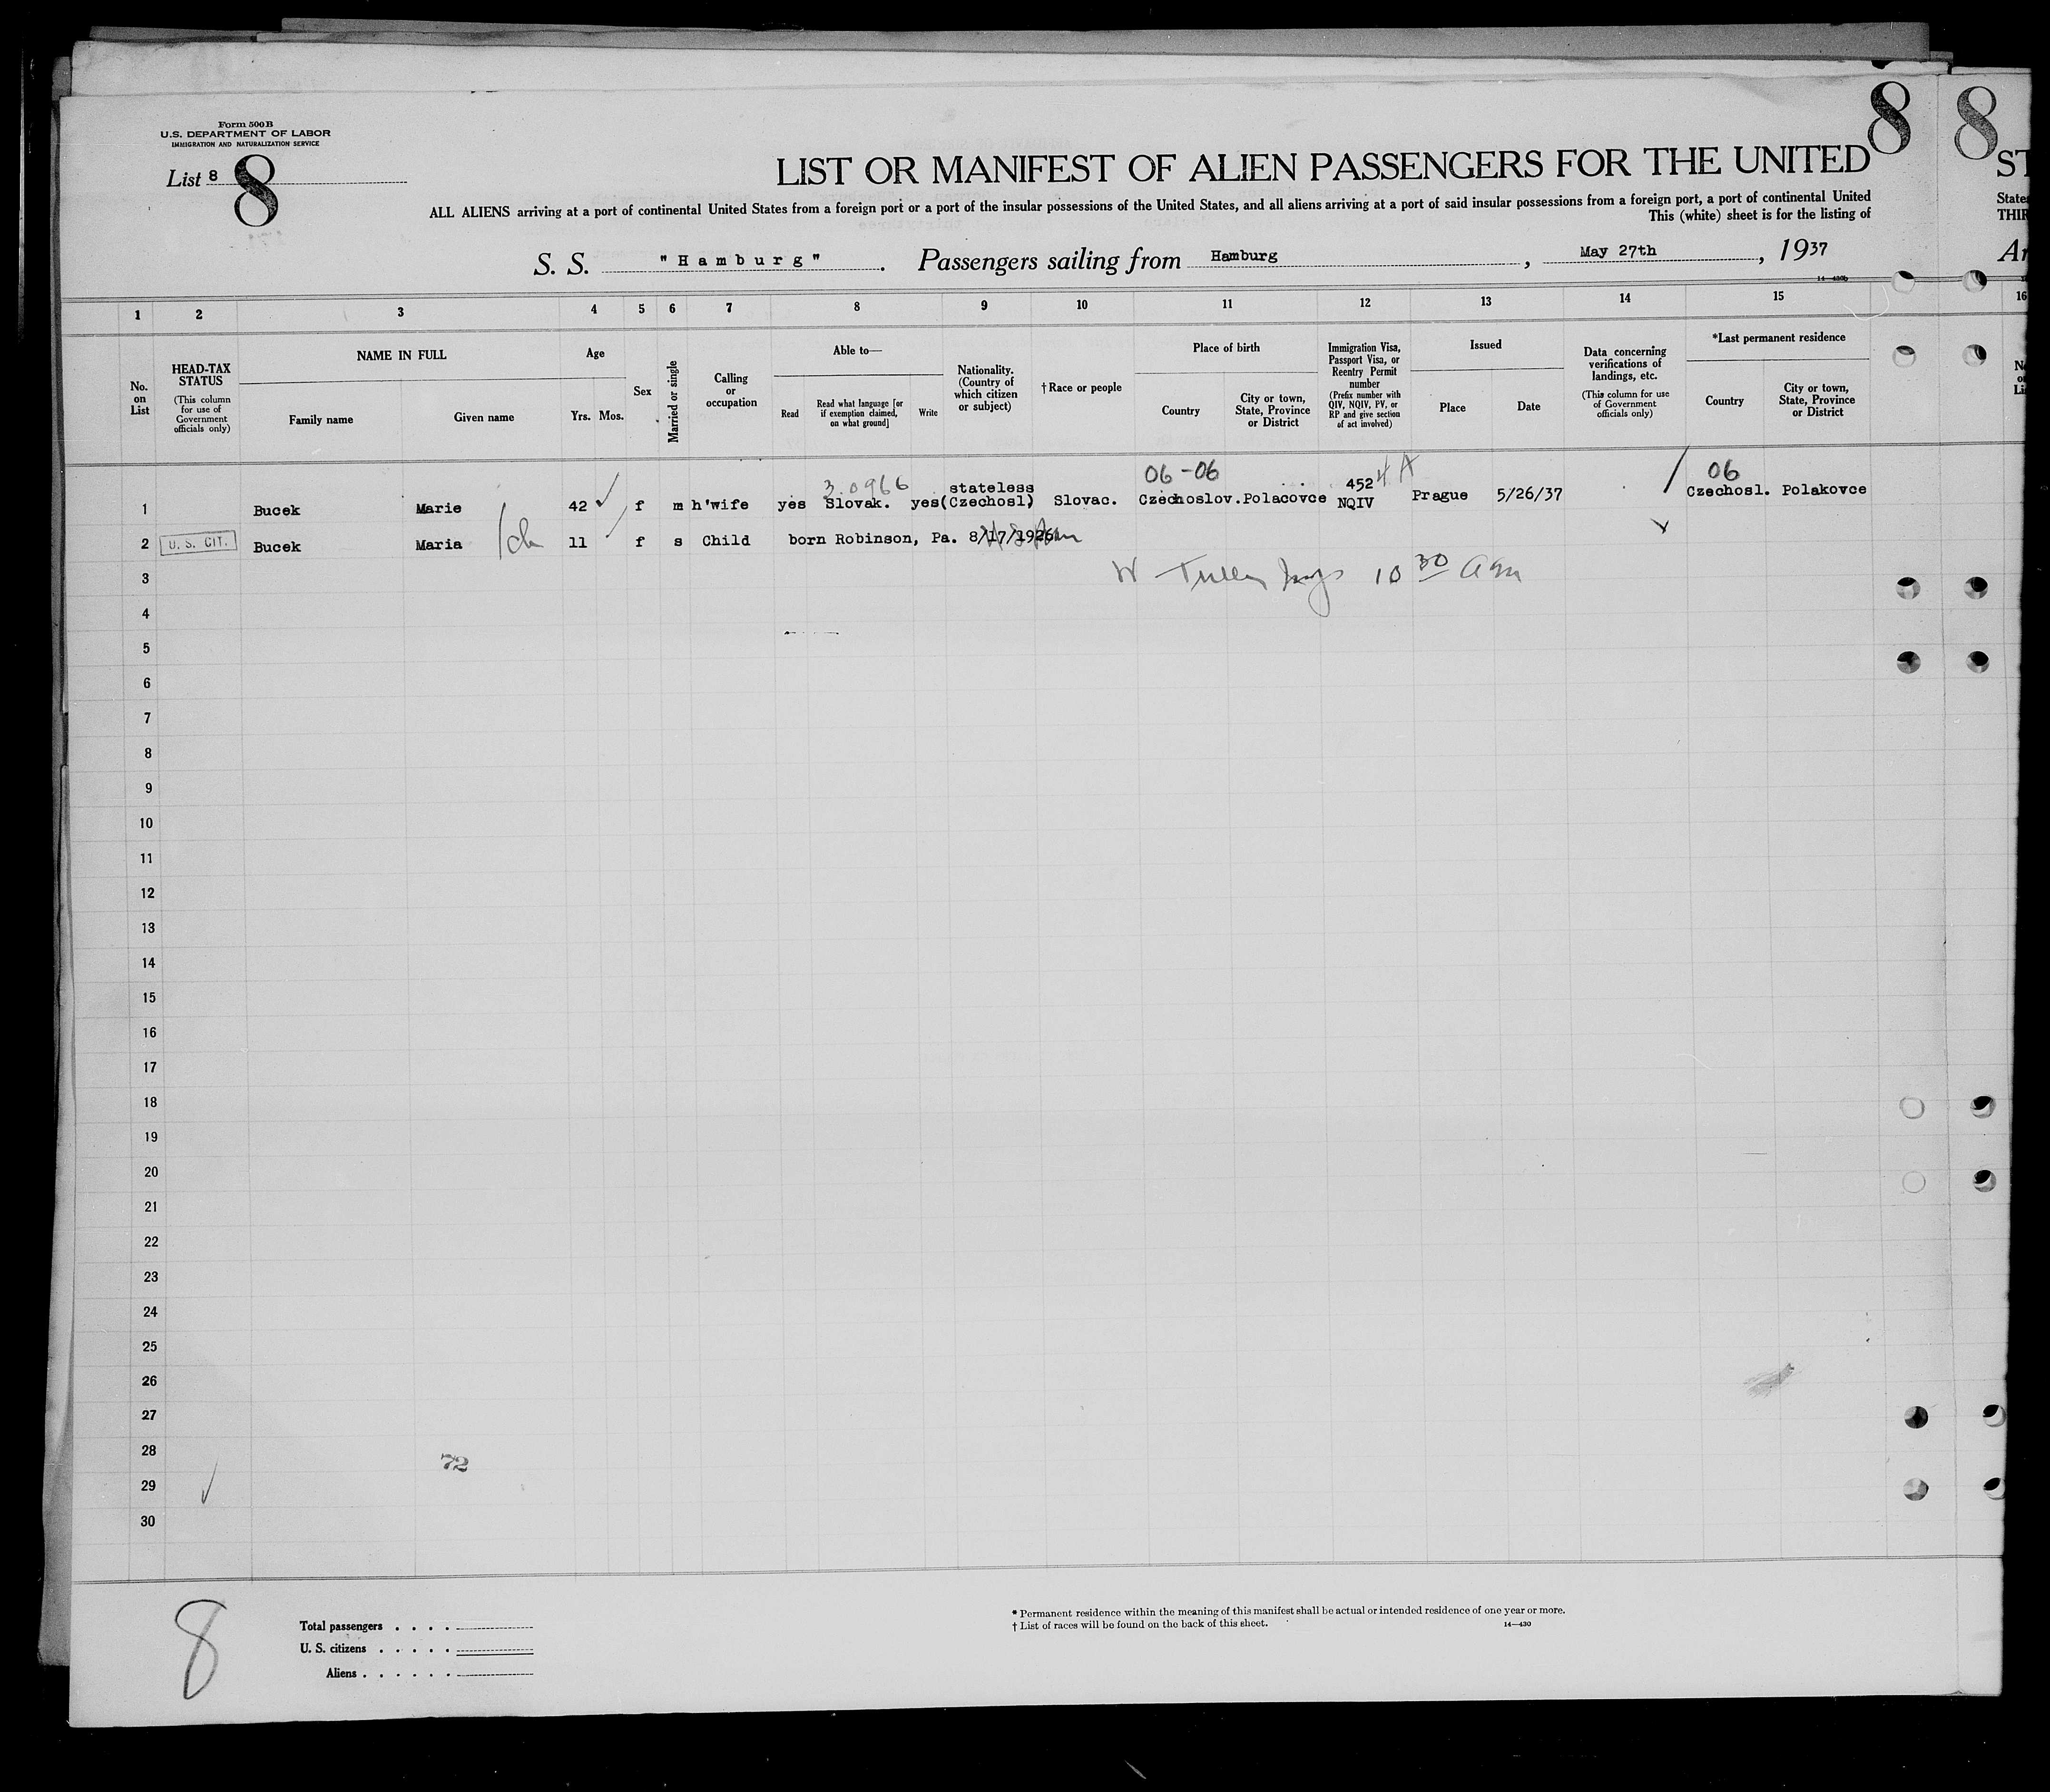 Form 500 B
U.S. DEPARTMENT OF LABOR
IMMIGRATION AND NATURALIZATION SERVICE
List 8
8
8
8
LIST OR MANIFEST OF ALIEN PASSENGERS FOR THE UNITED
ST
ALL ALIENS arriving at a port of continental United States from a foreign port or a port of the insular possessions of the United States, and all aliens arriving at a port of said insular possessions from a foreign port, a port of continental United
This (white) sheet is for the listing of
States
THIR
S. S. "Hamburg". Passengers sailing from Hamburg, May 27th, 1937
14—430b
1 2 3 4 5 6 7 8 9 10 11 12 13 14 15 16
No. on List
HEAD-TAX STATUS
(This column for use of Government officials only)
NAME IN FULL
Family name
Given name
Age
Yrs. Mos.
Sex
Married or single
Calling or occupation
Able to—
Read
Read what language [or if exemption claimed, on what ground]
Write
Nationality. (Country of which citizen or subject)
†Race or people
Place of birth
Country
City or town, State, Province or District
Immigration Visa, Passport Visa, or Reentry Permit number
(Prefix number with QIV, NQIV, PV, or RP and give section of act involved)
Issued
Place
Date
Data concerning verifications of landings, etc.
(This column for use of Government officials only)
*Last permanent residence
Country
City or town, State, Province or District
06-06
06
3.0966
stateless
452 4 A
1 Bucek Marie 42 f m h'wife yes Slovak. yes (Czechosl) Slovac. Czechoslov. Polacovce NQIV Prague 5/26/37 Czechosl. Polakovce
2 U. S. CIT. Bucek Maria 11 f s Child born Robinson, Pa. 8/17/1926
10 30 am
3
4
5
6
7
8
9
10
11
12
13
14
15
16
17
18
19
20
21
22
23
24
25
26
27
28
72
29
30
8
Total passengers
U. S. citizens
Aliens
* Permanent residence within the meaning of this manifest shall be actual or intended residence of one year or more.
† List of races will be found on the back of this sheet.
14—430